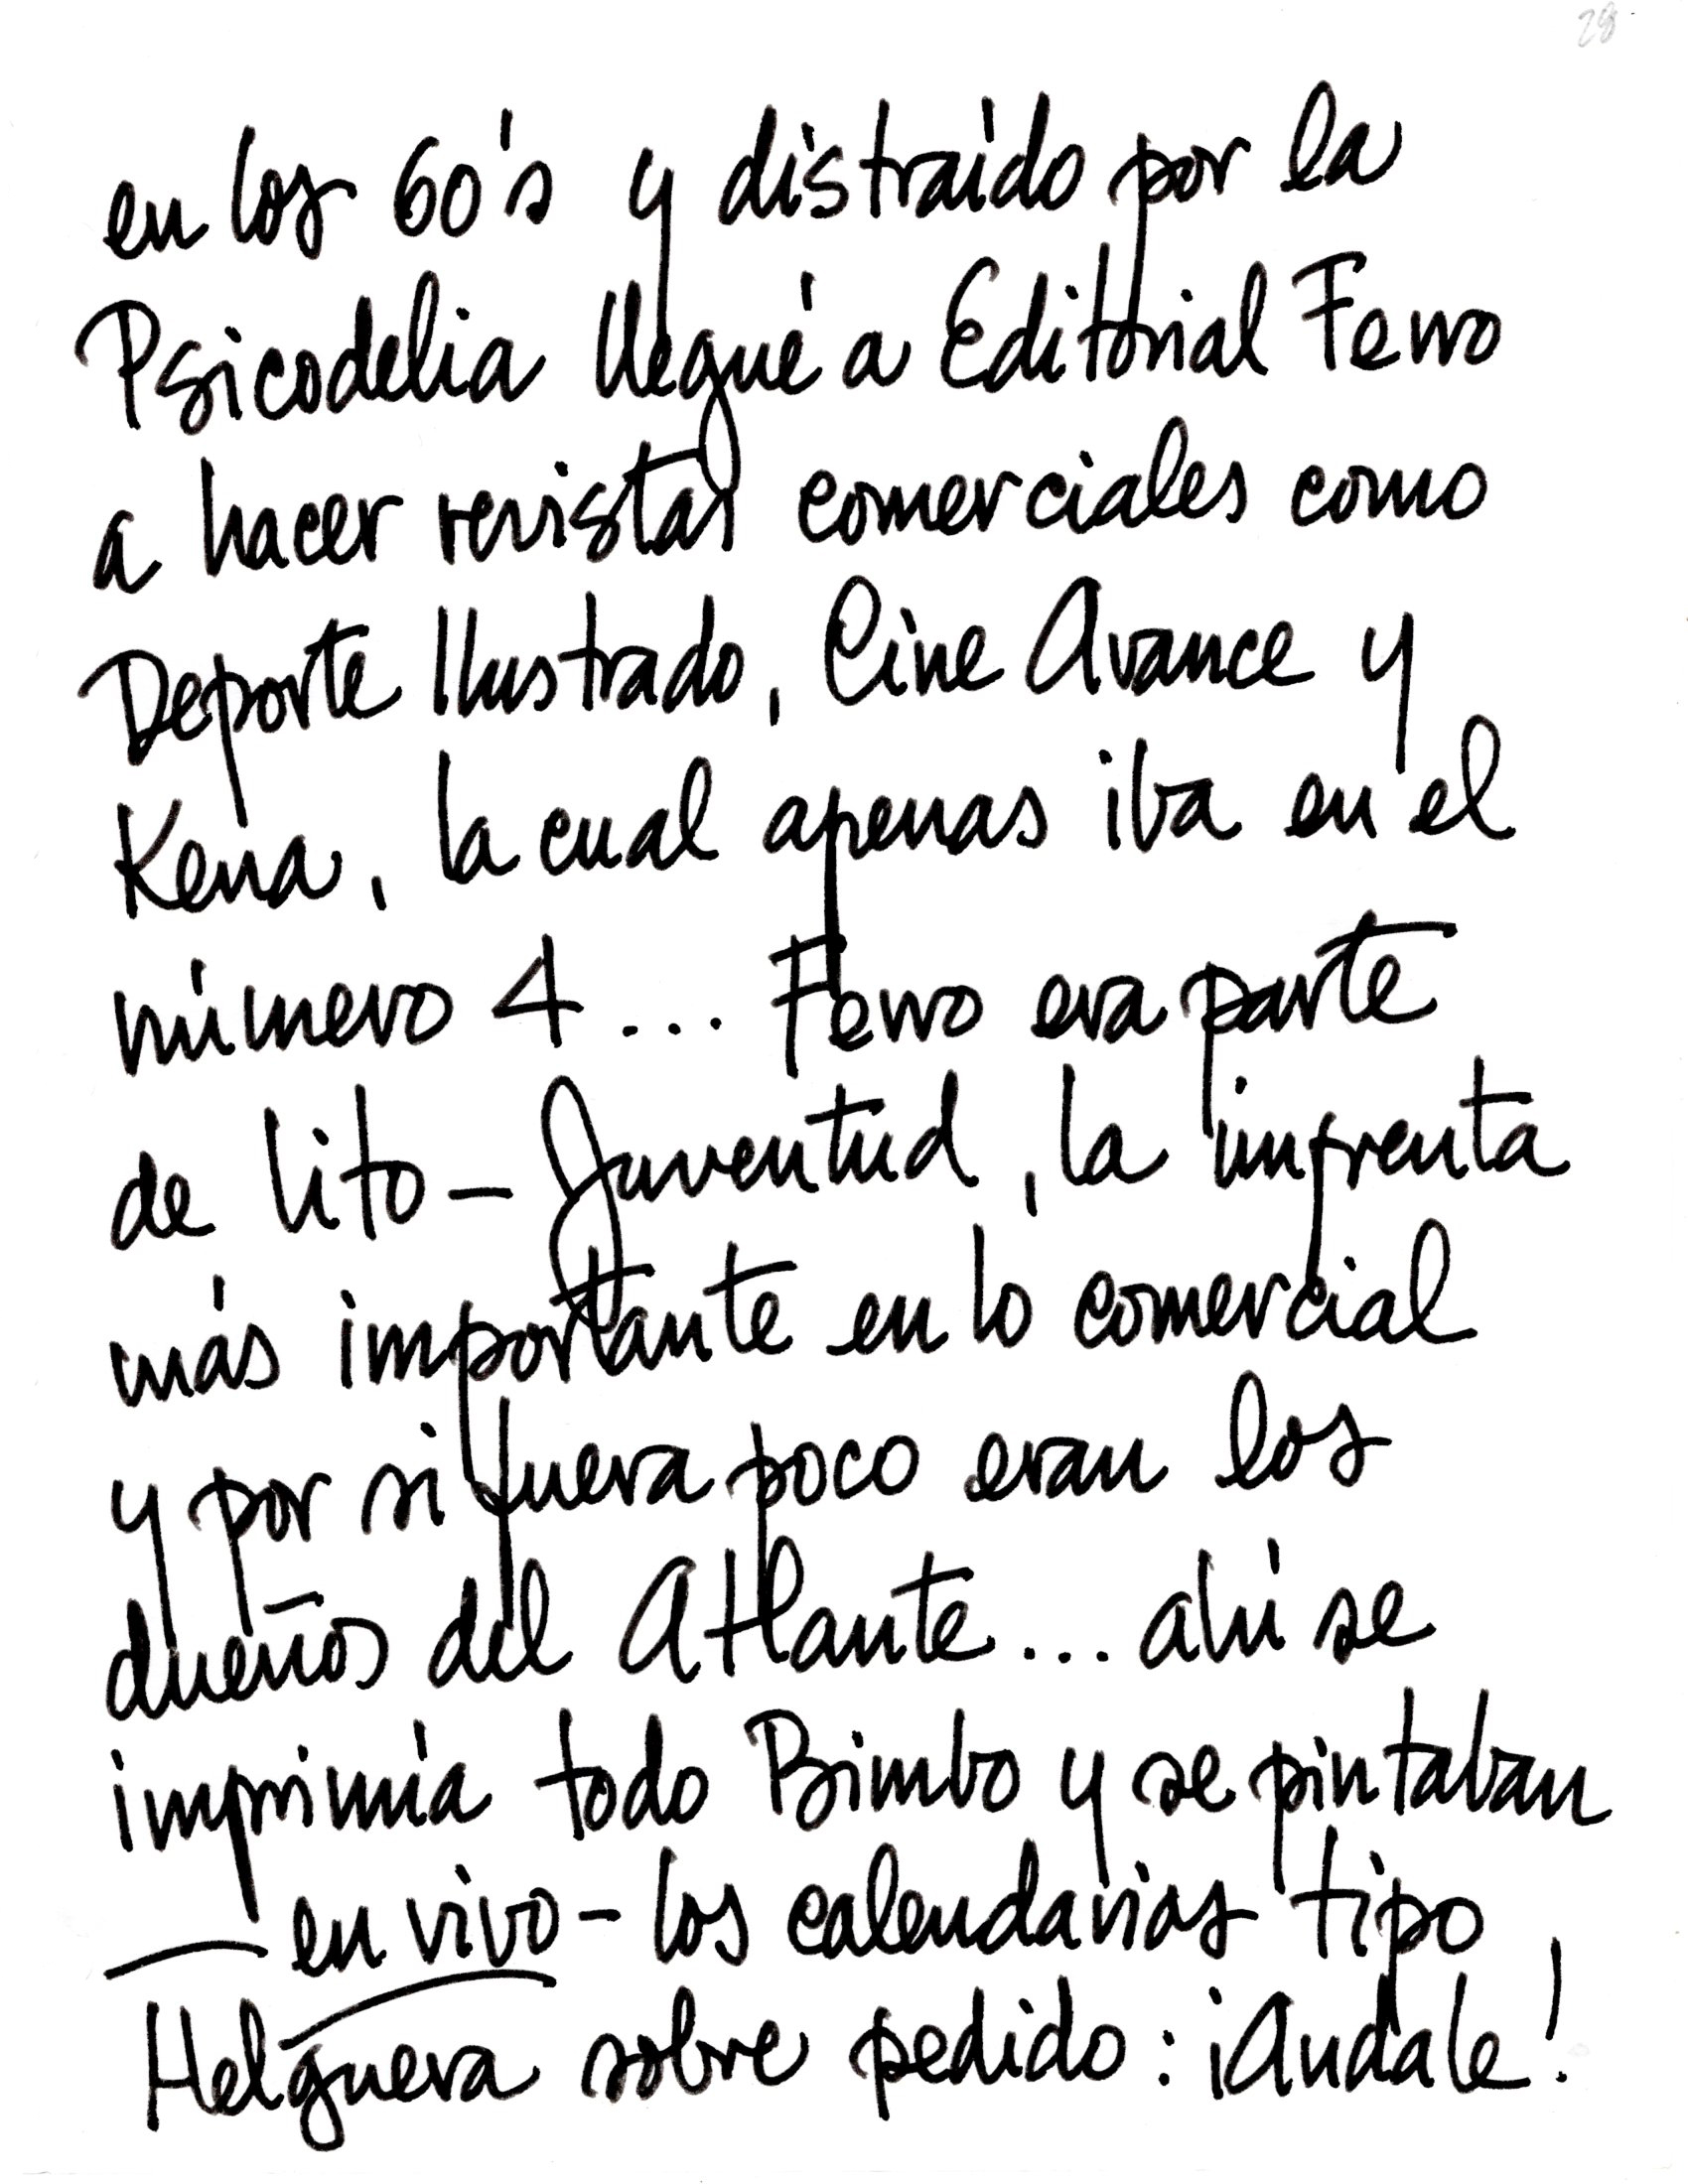 28
en los 60's y distraído por la
Psicodelia llegué a Editorial Ferro
a hacer revistas comerciales como
Deporte Ilustrado, Cine Avance y
Kena, la cual apenas iba en el
número 4... Ferro era parte
de Lito - Juventud, la imprenta
más importante en lo comercial
y por si fuera poco eran los
dueños del Atlante... ahí se
imprimía todo Bimbo y se pintaban
— en vivo - los calendarios tipo
Helguera sobre pedido: ¡Andale!